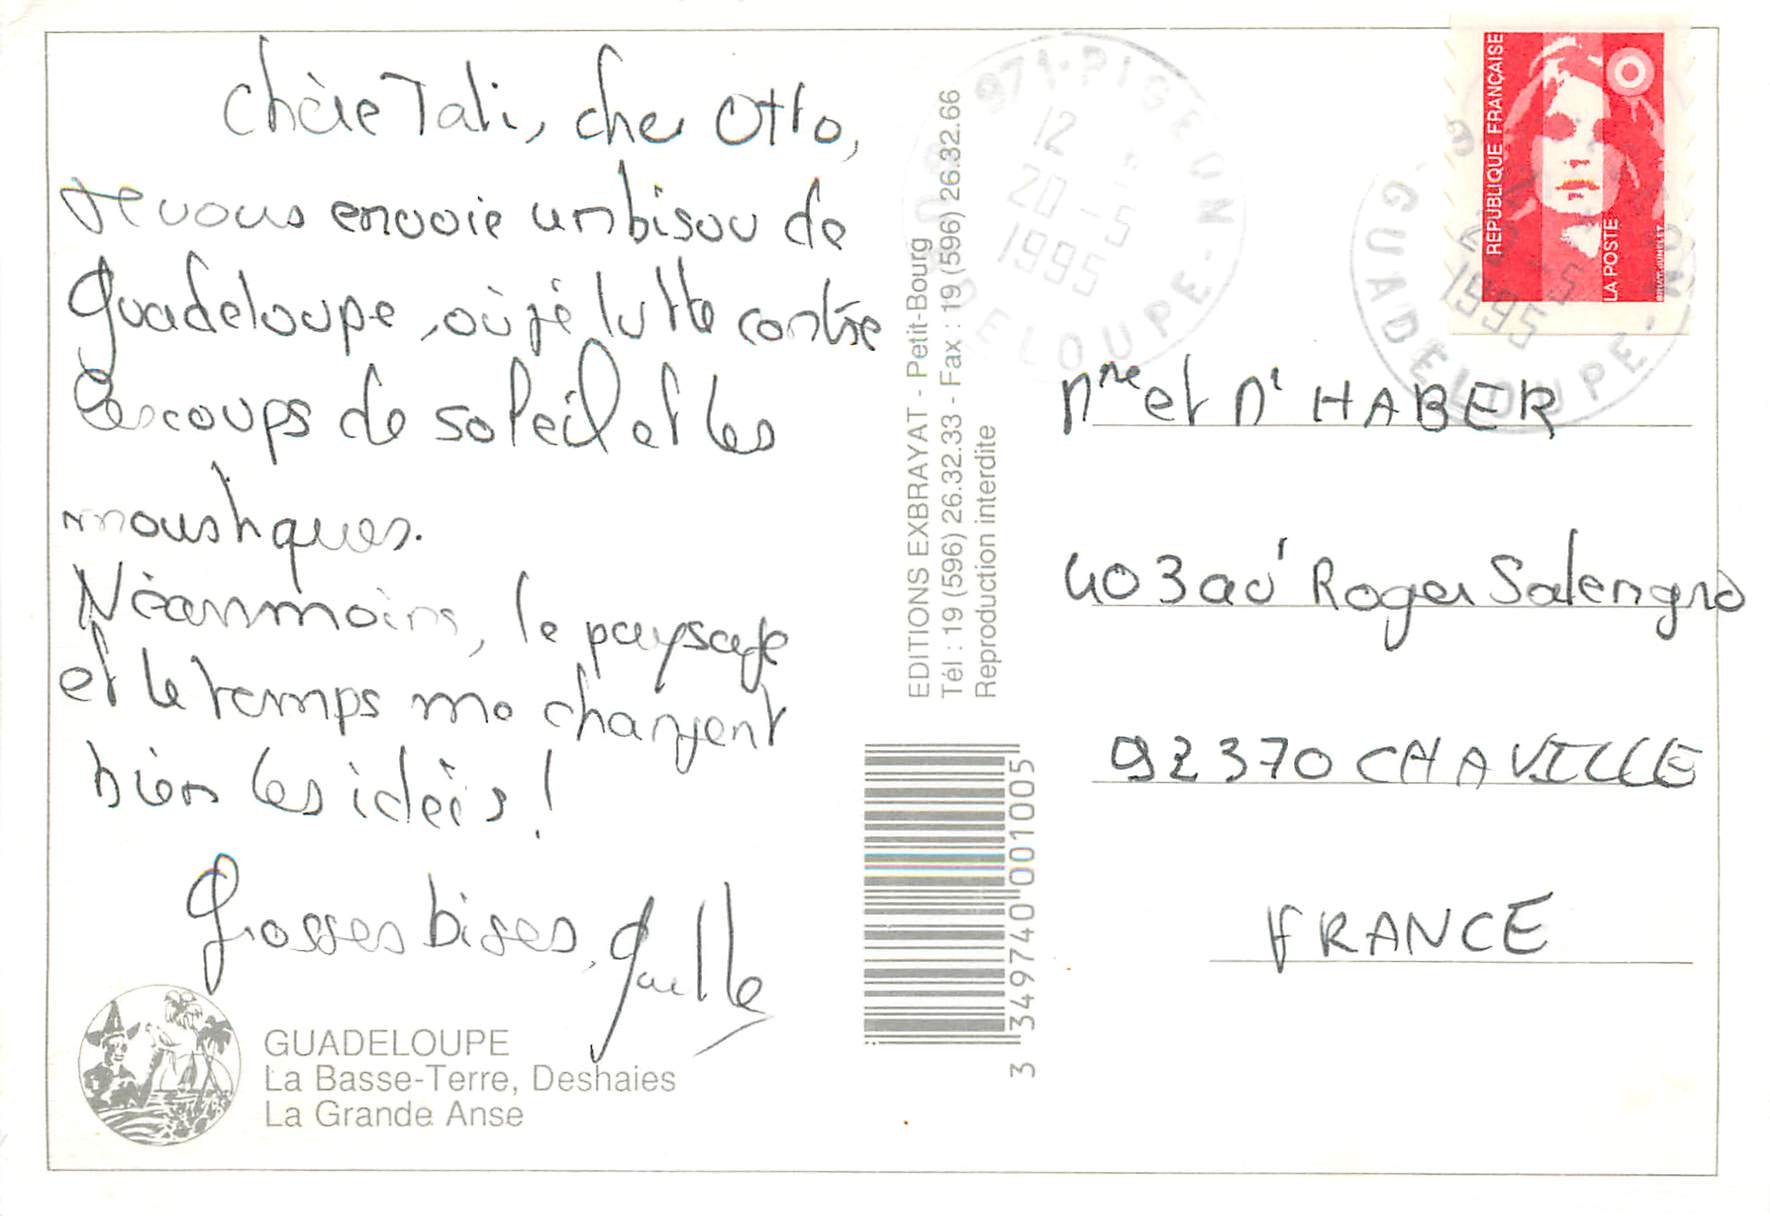 Chère Tali, cher Otto,
Je vous envoie un bisou de
Guadeloupe, où je lutte contre
les coups de soleil et les
moustiques.
Néanmoins, le paysage
et le temps me changent
bien les idées !
Grosses bises, Gaelle
GUADELOUPE
La Basse-Terre, Deshaies
La Grande Anse
EDITIONS EXBRAYAT - Petit-Bourg
Tél : 19 (596) 26.32.33 - Fax : 19 (596) 26.32.66
Reproduction interdite
3 349740 001005
971-PIGEON
12
20-5
1995
GUADELOUPE
REPUBLIQUE FRANÇAISE
LA POSTE
1995
GUADELOUPE
Mme et Mr HABER
403 av Roger Salengro
92370 CHAVILLE
FRANCE